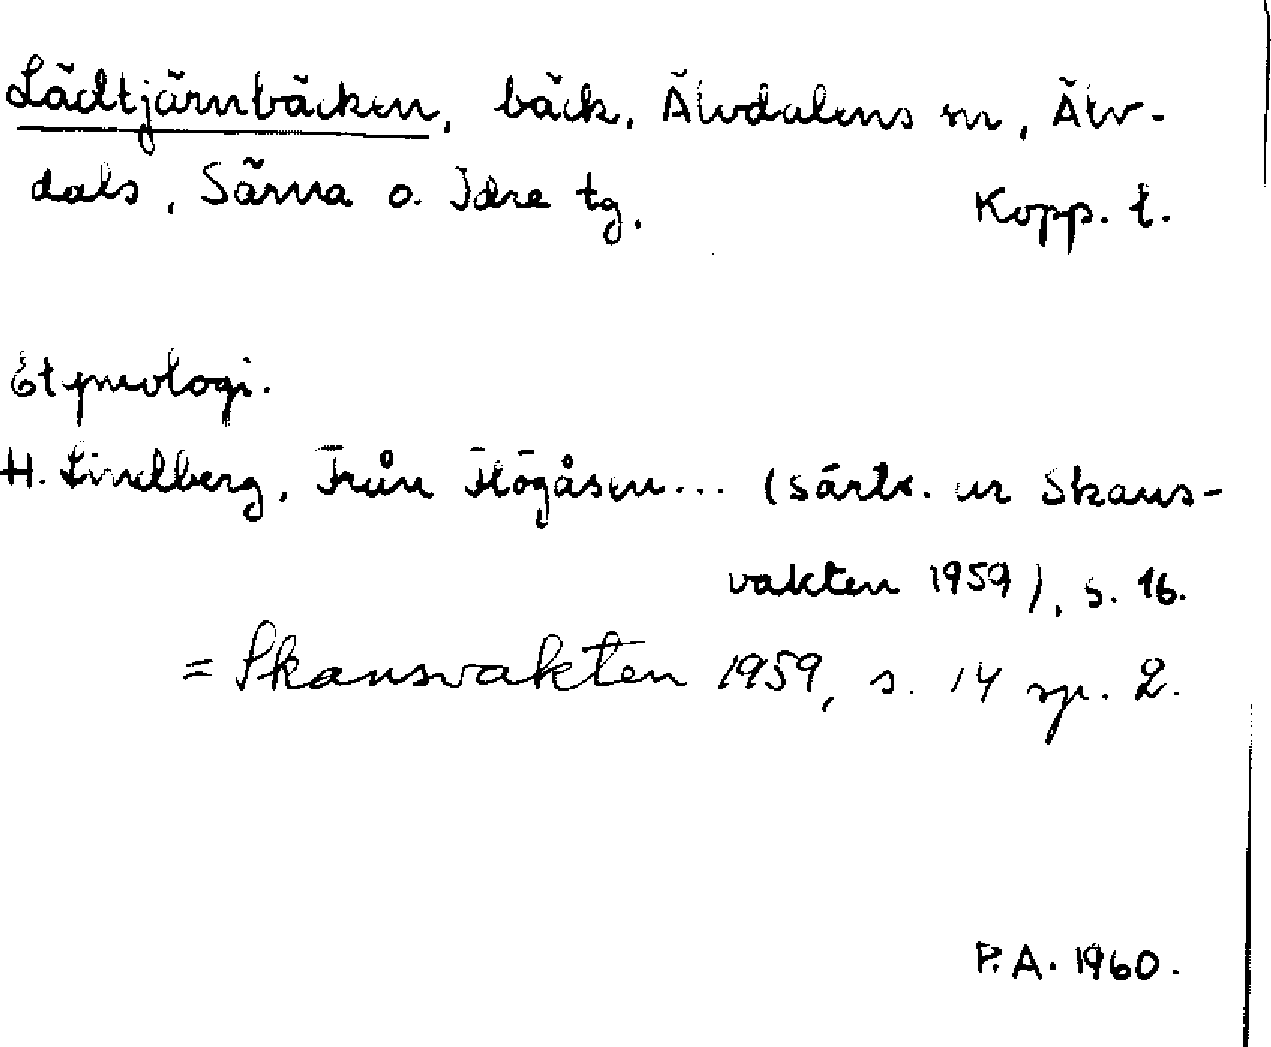 Lädtjärnbäcken, bäck, Älvdalens sn, Älv-
dals, Särna o. Idre tg.
Kopp. l.
Etymologi.
H. Lindberg, Från Högåsen... (särtr. ur Skans-
vakten 1959), s. 16.
= Skansvakten 1959, s. 14 sp. 2.
P.A. 1960.